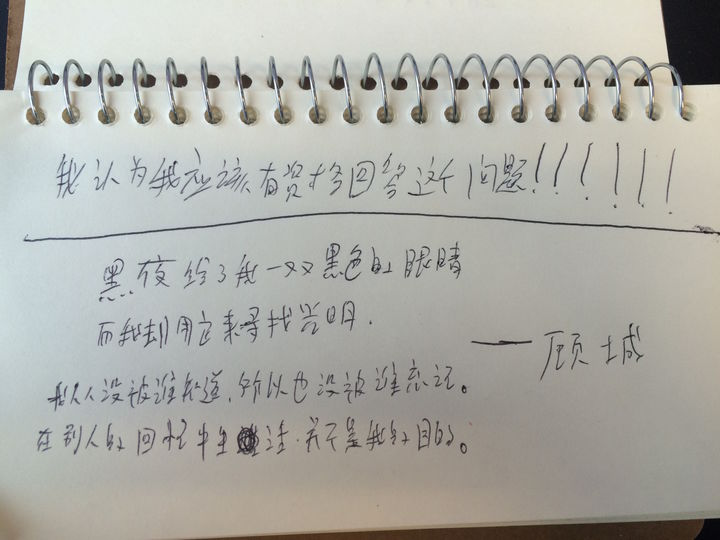 我认为我应该有资格回答这个问题!!!!!!!
黑夜给了我一双黑色的眼睛
而我却用它来寻找光明.
——顾城
我从没被谁知道,所以也没被谁忘记。
在别人的回忆中生活,并不是我的目的。